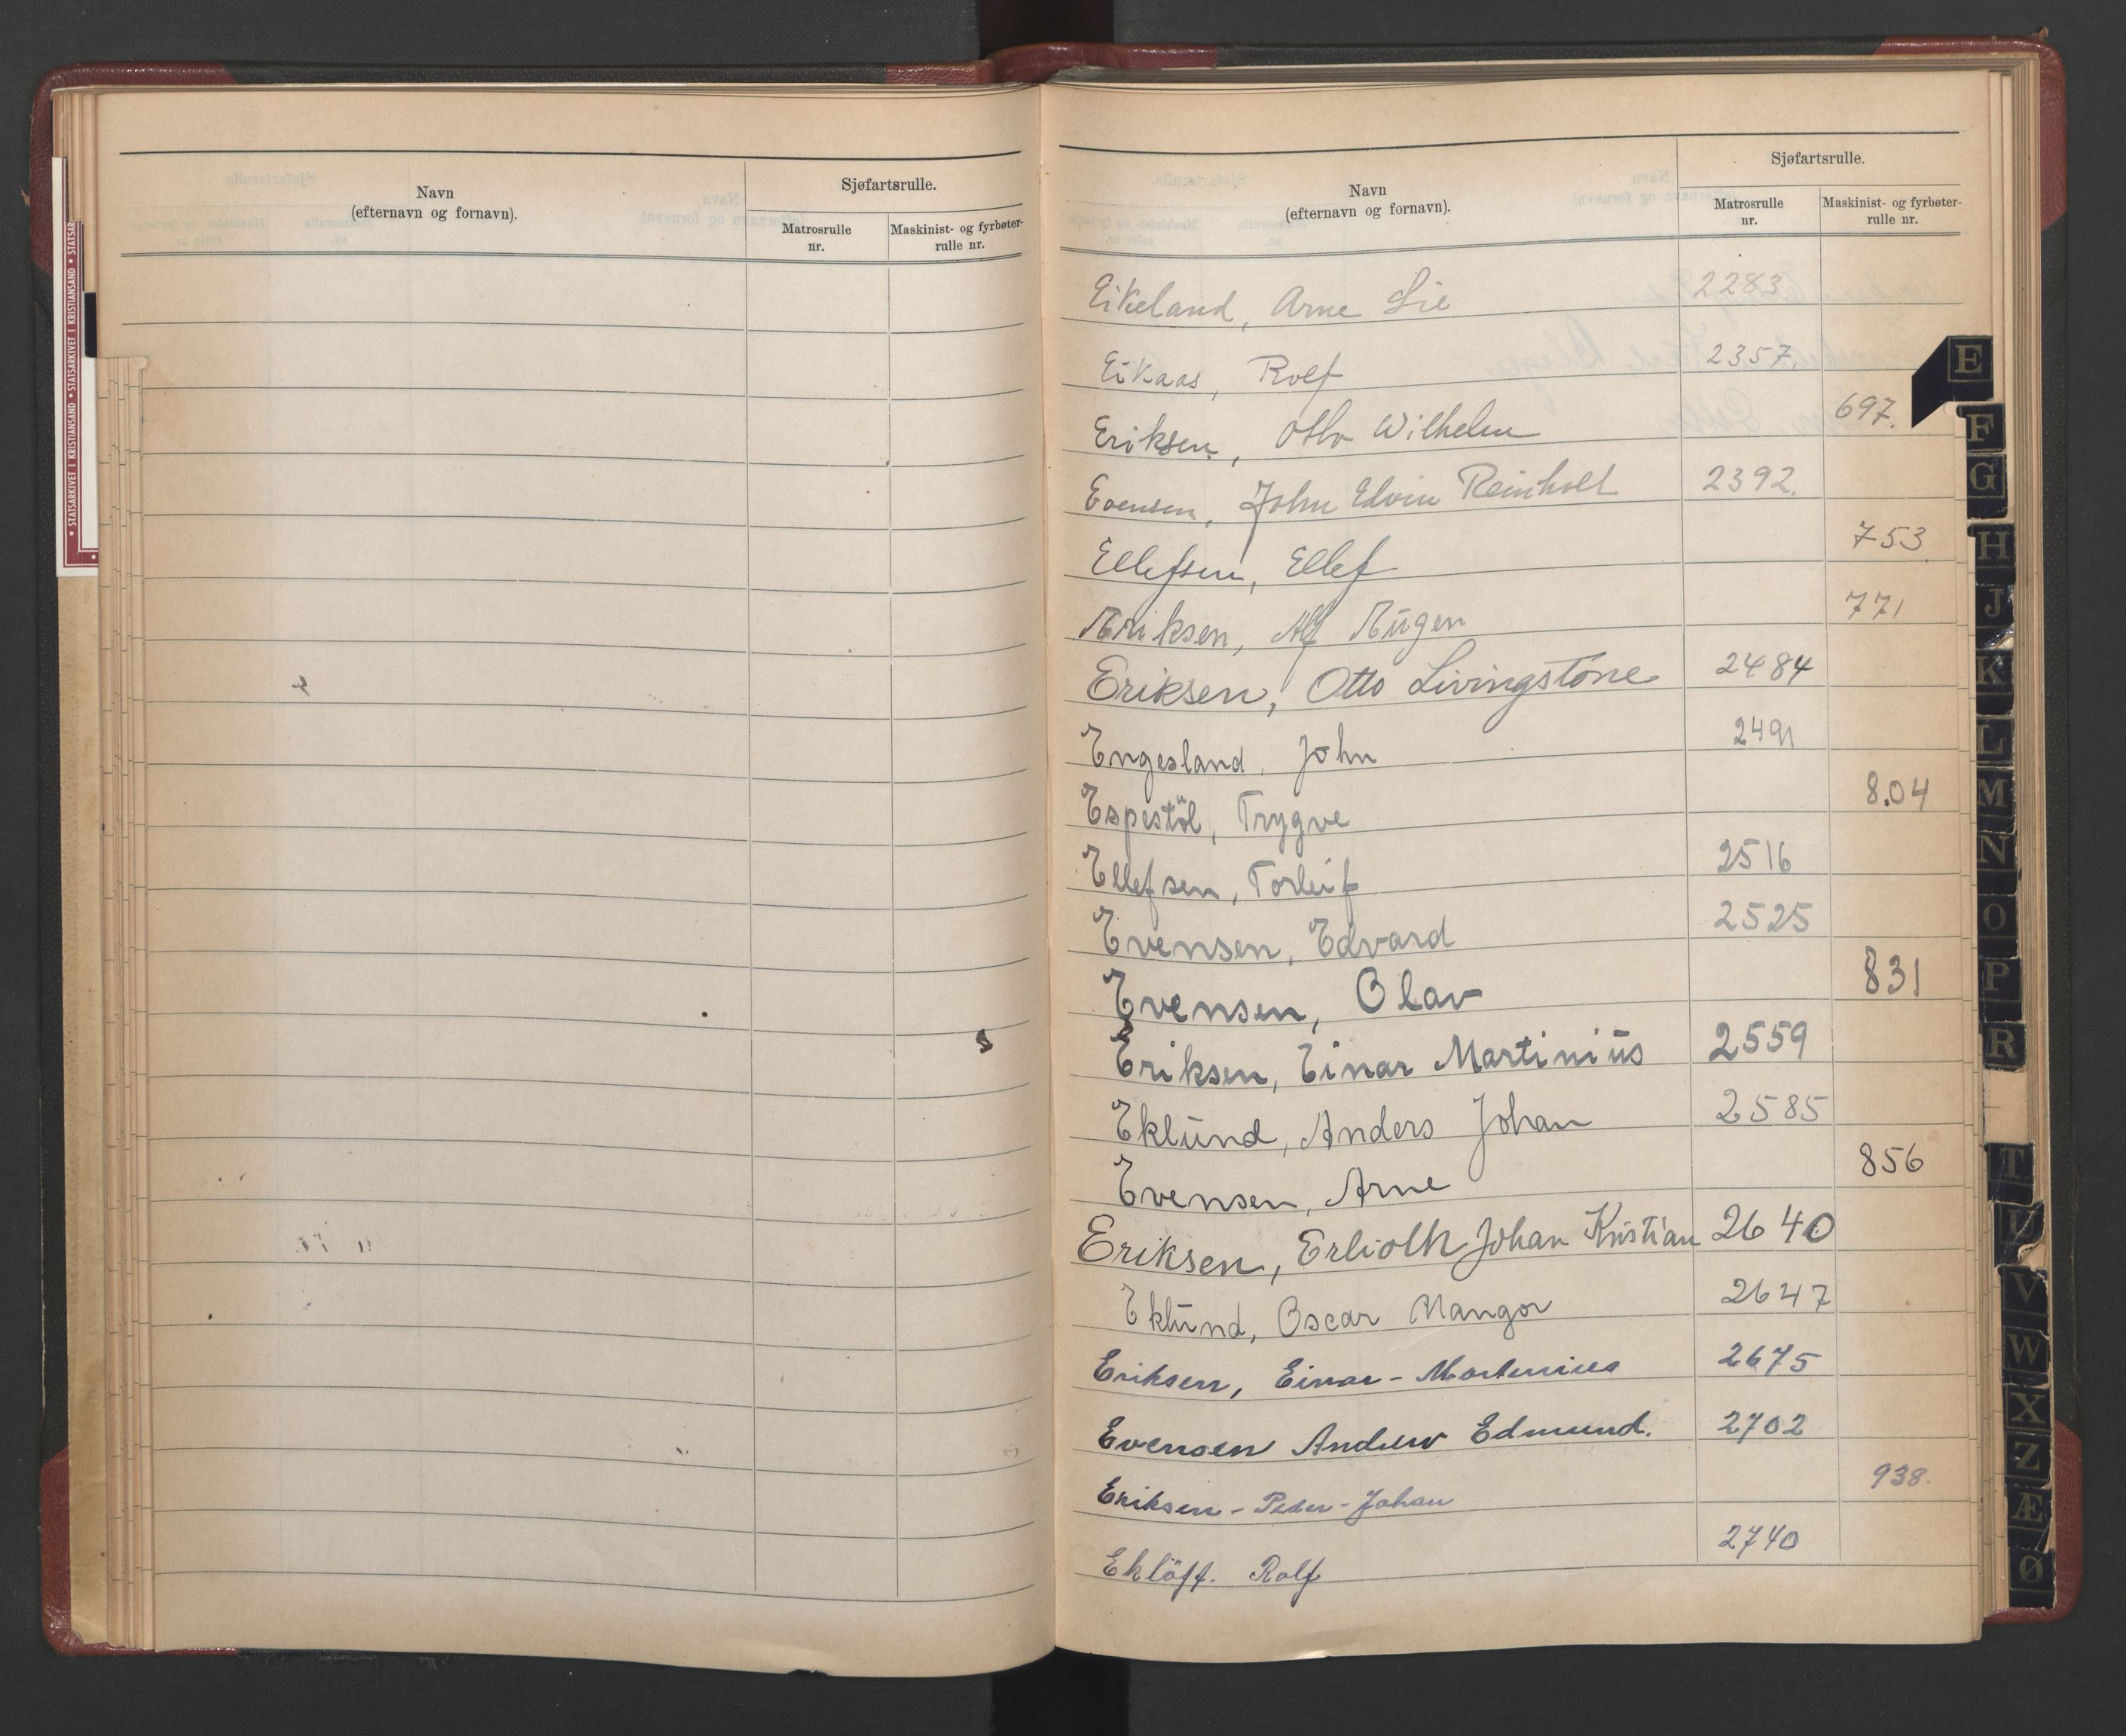 STATSARKIVET I KRISTIANSAND • STATSARKIVET I KRISTIANSAND • STATSAR
Navn
(efternavn og fornavn).
Sjøfartsrulle.
Matrosrulle
nr.
Maskinist- og fyrbøter-
rulle nr.
Navn
(efternavn og fornavn).
Sjøfartsrulle.
Matrosrulle
nr.
Maskinist- og fyrbøter-
rulle nr.
Eikeland, Arne Lie 2283
Eikaas, Rolf 2357.
Eriksen, Otto Wilhelm 697.
Evensen, John Edvin Reinholt 2392.
Ellefsen, Ellef 753
Eriksen, Alf Eugen 771
Eriksen, Otto Livingstone 2484
Engesland, John 2491
Espestöl, Trygve 8.04
Ellefsen, Torleif 2516
Evensen, Edvard 2525
Evensen, Olav 831
Eriksen, Einar Martinius 2559
Eklund, Anders Johan 2585
Evensen, Arne 856
Eriksen, Johan Kristian 2640
Eklund, Oscar Mangor 2647
Eriksen, Einar - Martinius 2675
Evensen Andrew Edmund. 2702
Eriksen - Peder - Johan 938.
Eklöff. Rolf 2740
E
F
G
H
J
K
L
M
N
O
P
R
T
U
V
W
X
Z
Æ
Ø